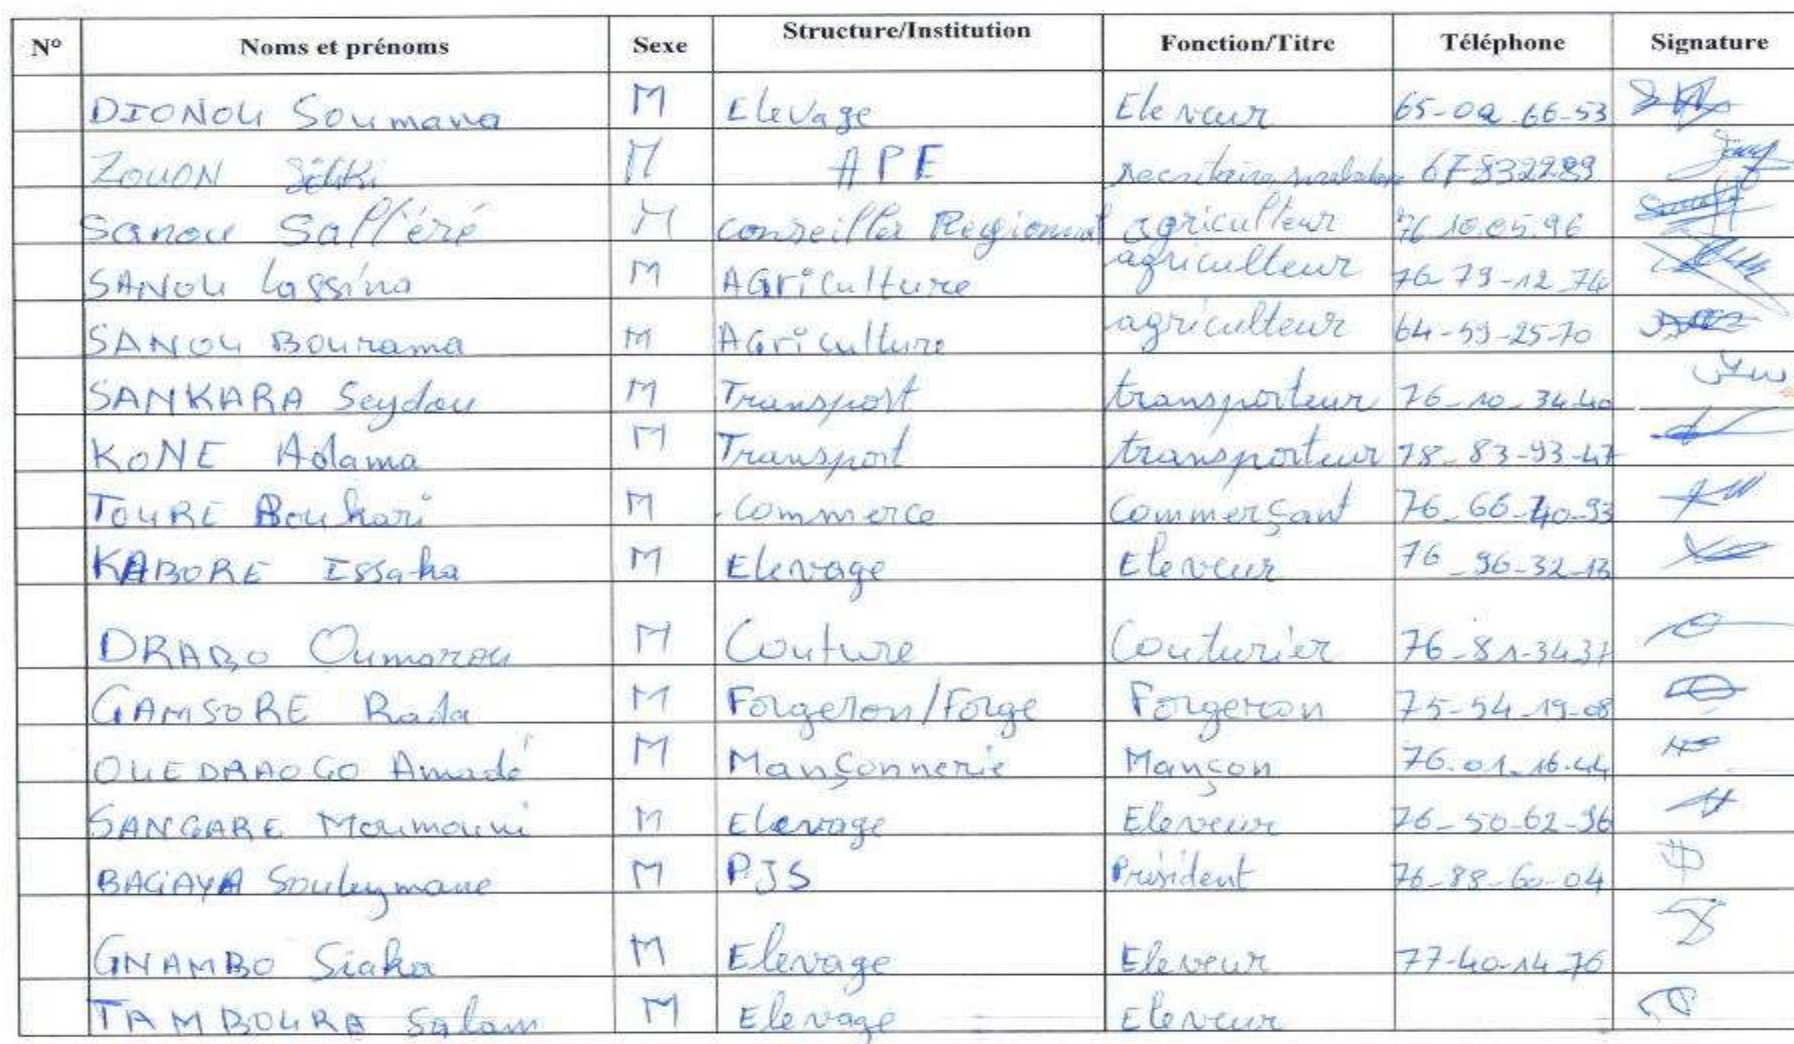 N° Noms et prénoms Sexe Structure/Institution Fonction/Titre Téléphone Signature
DIONOU Soumana M Elevage Eleveur 65-02-66-53
ZOUON M APE 67832289
Sanou Salféré M conseiller Regional agriculteur 76.10.05.96
SANOU Lassina M AGriculture agriculteur 76-79-12-74
SANOU Bourama M AGriculture agriculteur 64-59-25-70
SANKARA Seydou M Transport transporteur 76-10-34-40
KONE Adama M Transport transporteur 78-83-93-47
TOURE Boukari M Commerce Commerçant 76-66-40-93
KABORE Issaka M Elevage Eleveur 76-96-32-13
DRABO Oumarou M Couture Couturier 76-81-3437
GAMSORE Rada M Forgeron/Forge Forgeron 75-54-19-08
OUEDRAOGO Amadé M Mançonnerie Mançon 76.01.16.44
SANGARE Moumouni M Elevage Eleveur 76-50-62-96
BAGAYA Souleymane M PJS Président 76-88-60-04
GNAMBO Siaka M Elevage Eleveur 77-40-14-76
TAMBOURA Salam M Elevage Eleveur